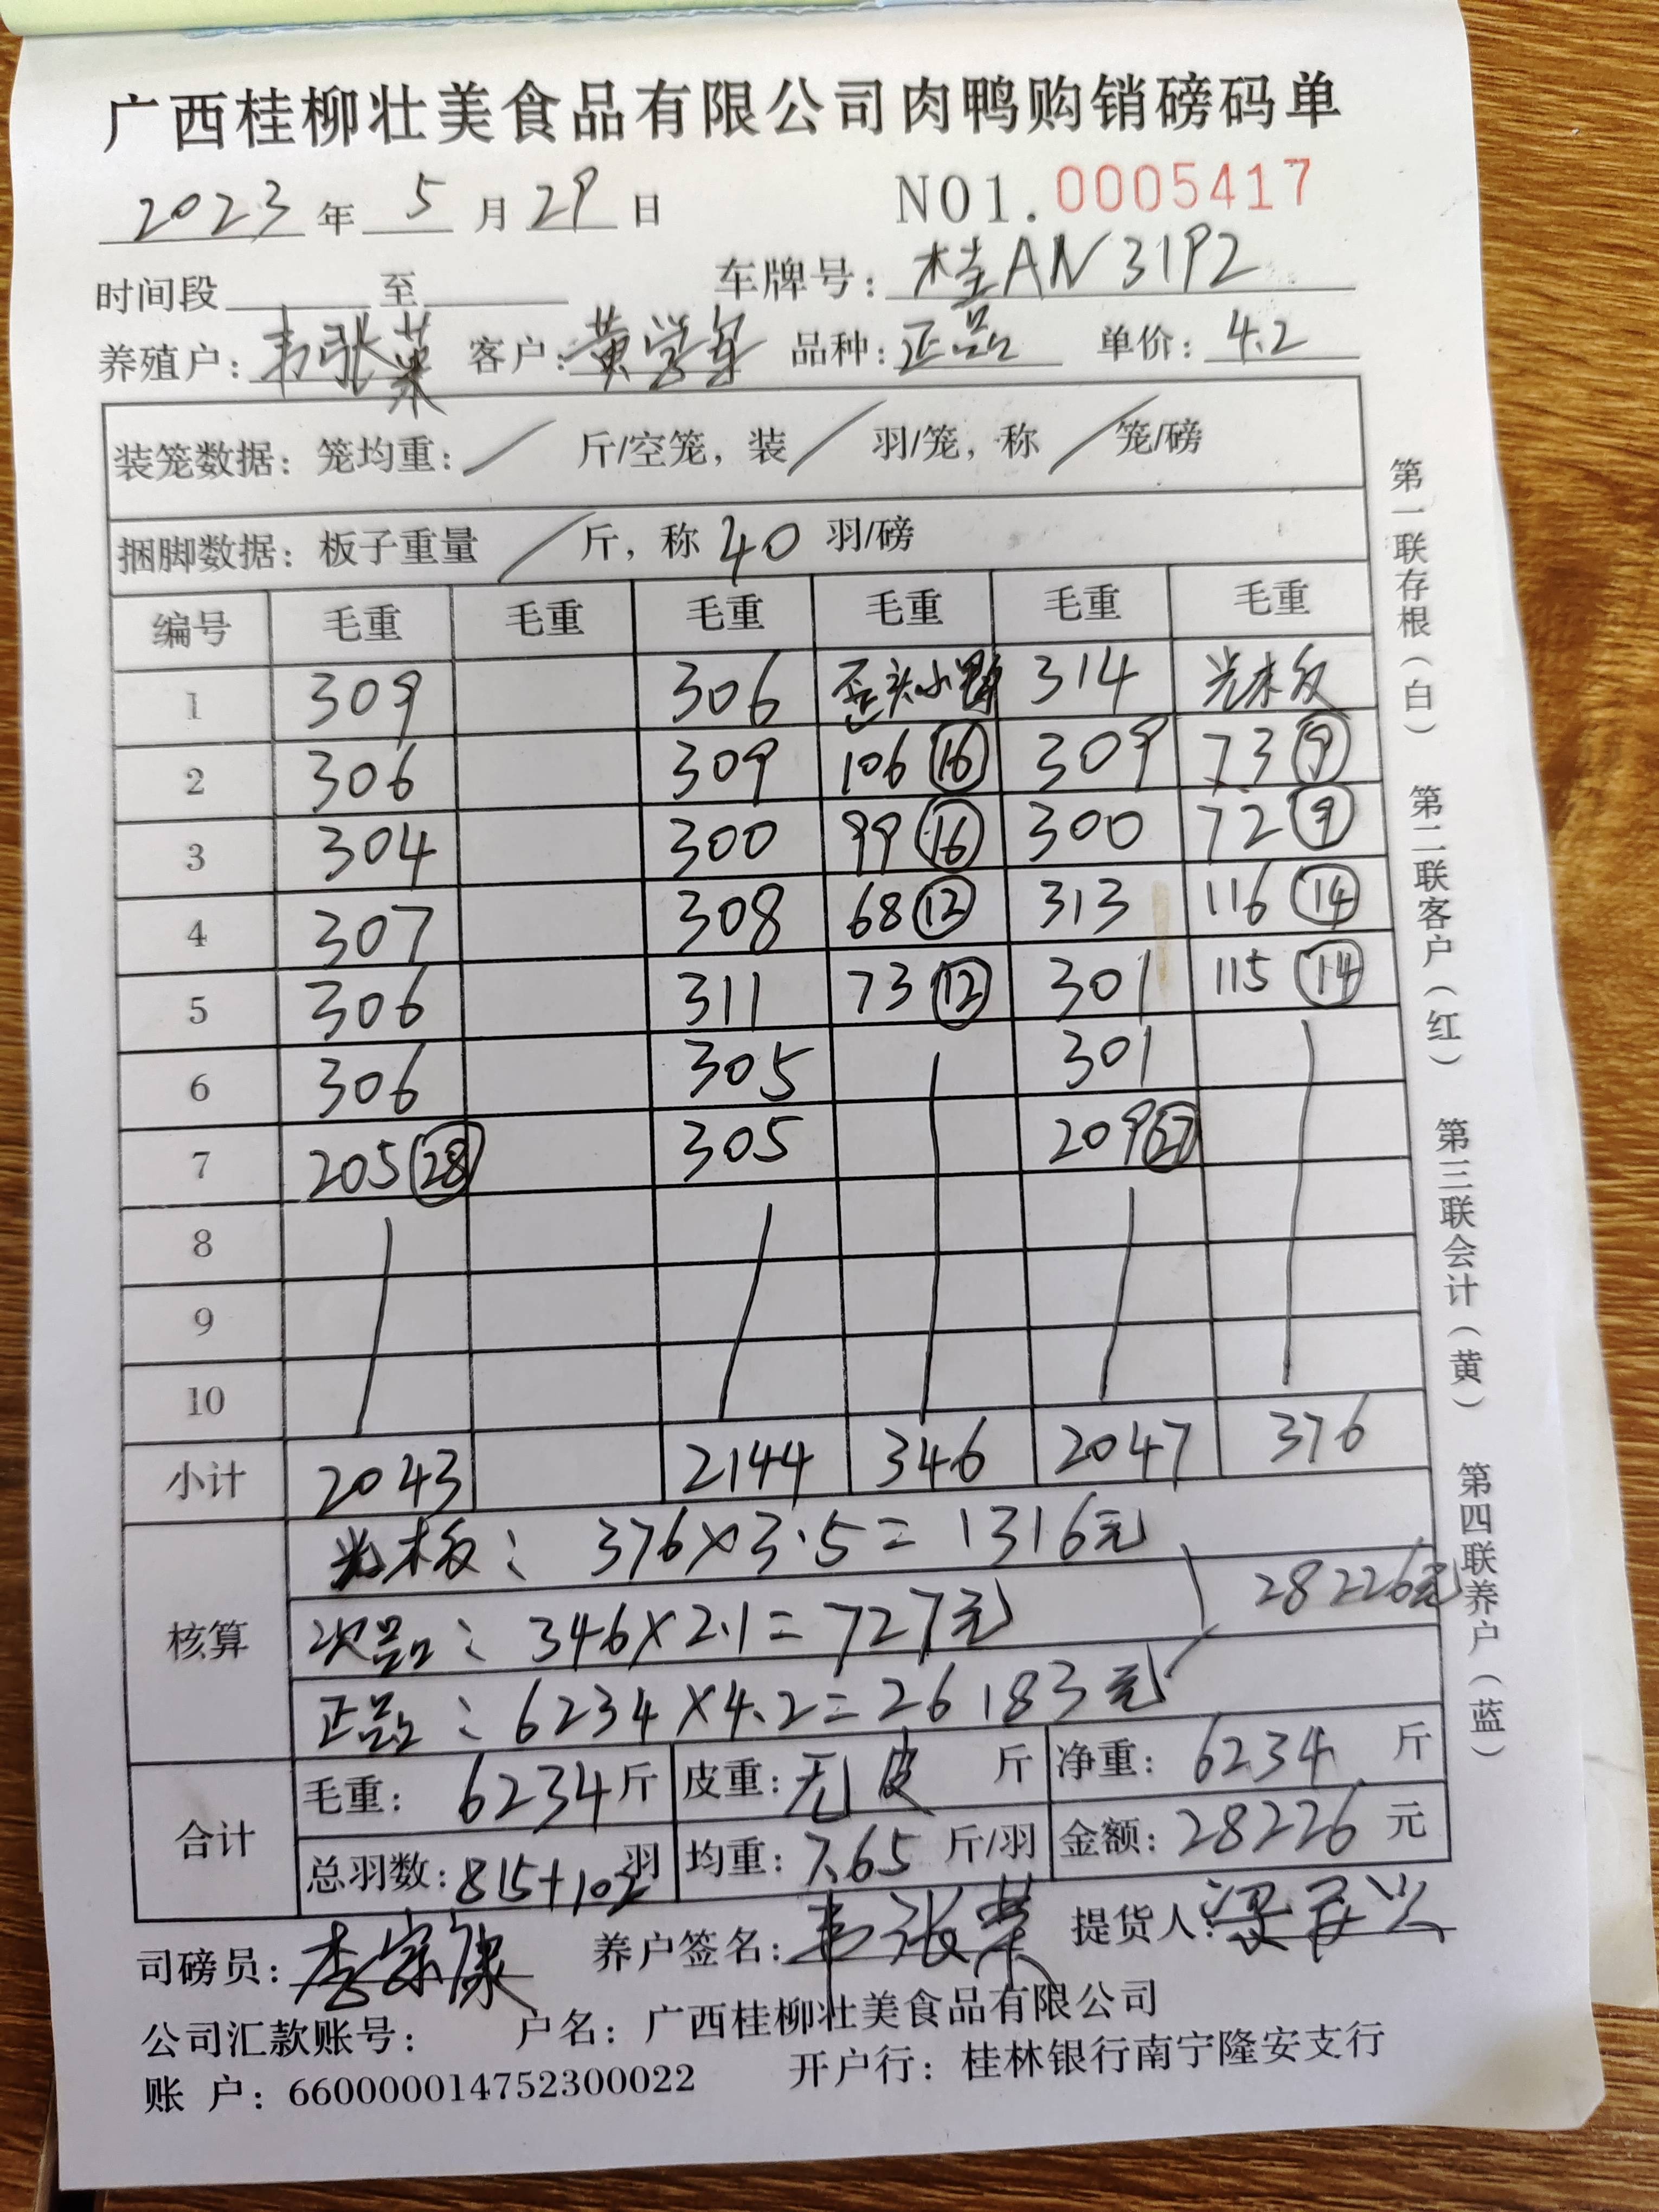 广西桂柳壮美食品有限公司肉鸭购销磅码单
2023 年 5 月 29 日 NO1.0005417
时间段 至 车牌号: 桂AN3192
养殖户: 韦张荣 客户: 黄学军 品种: 正品 单价: 4.2
装笼数据: 笼均重: / 斤/空笼, 装 / 羽/笼, 称 / 笼/磅
捆脚数据: 板子重量 / 斤, 称 40 羽/磅
编号 毛重 毛重 毛重 毛重 毛重 毛重
1 309 306 歪头小 314 光木板
2 306 309 106 16 309 73 9
3 304 300 99 16 300 72 9
4 307 308 68 12 313 116 14
5 306 311 73 12 301 115 14
6 306 305 301
7 205 28 305 209 27
8
9
10
小计 2043 2144 346 2047 376
核算 光木板: 376×3.5=1316元
次品: 346×2.1=727元 28226元
正品: 6234×4.2=26183元
合计 毛重: 6234 斤 皮重: 无皮 斤 净重: 6234 斤
总羽数: 815+102 羽 均重: 7.65 斤/羽 金额: 28226 元
司磅员: 李宗康 养户签名: 韦张荣 提货人:
公司汇款账号: 户名: 广西桂柳壮美食品有限公司
账 户: 660000014752300022 开户行: 桂林银行南宁隆安支行
第一联存根(白) 第二联客户(红) 第三联会计(黄) 第四联养户(蓝)